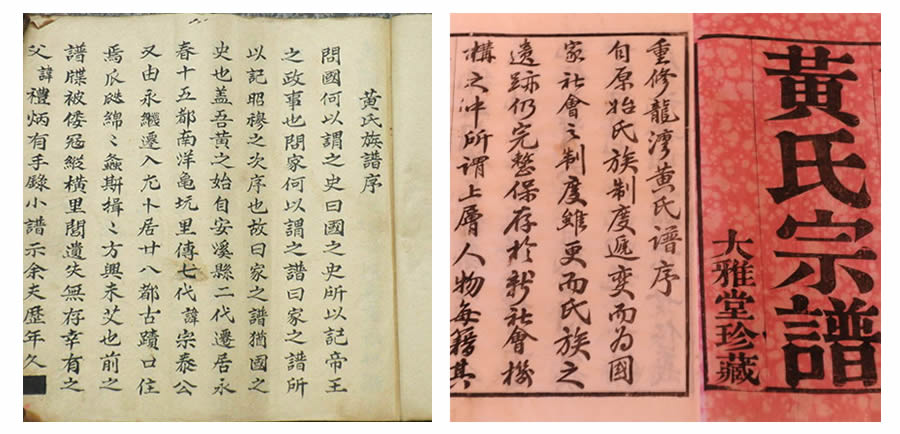 黃氏族譜序
問國何以謂之史曰國之史所以記帝王
之政事也問家何以謂之譜曰家之譜所
以記昭穆之次序也故曰家之譜猶國之
史也蓋吾黃之始自安溪縣二代遷居永
春十五都南洋龜坑里傳七代諱宗泰公
又由永繼遷入尤卜居廿八都古蹟口住
焉瓜瓞綿々螽斯揖々方興未艾也前之
譜牒被倭寇縱橫里閭遺失無存幸有之
父諱禮炳有手錄小譜示余夫歷年久
黃氏宗譜
大雅堂珍藏
重修龍灣黃氏譜序
自原始氏族制度遞變而為國
家社會之制度雖更而氏族之
遺跡仍完整保存於新社會機
構之冲所謂上層人物每籍其